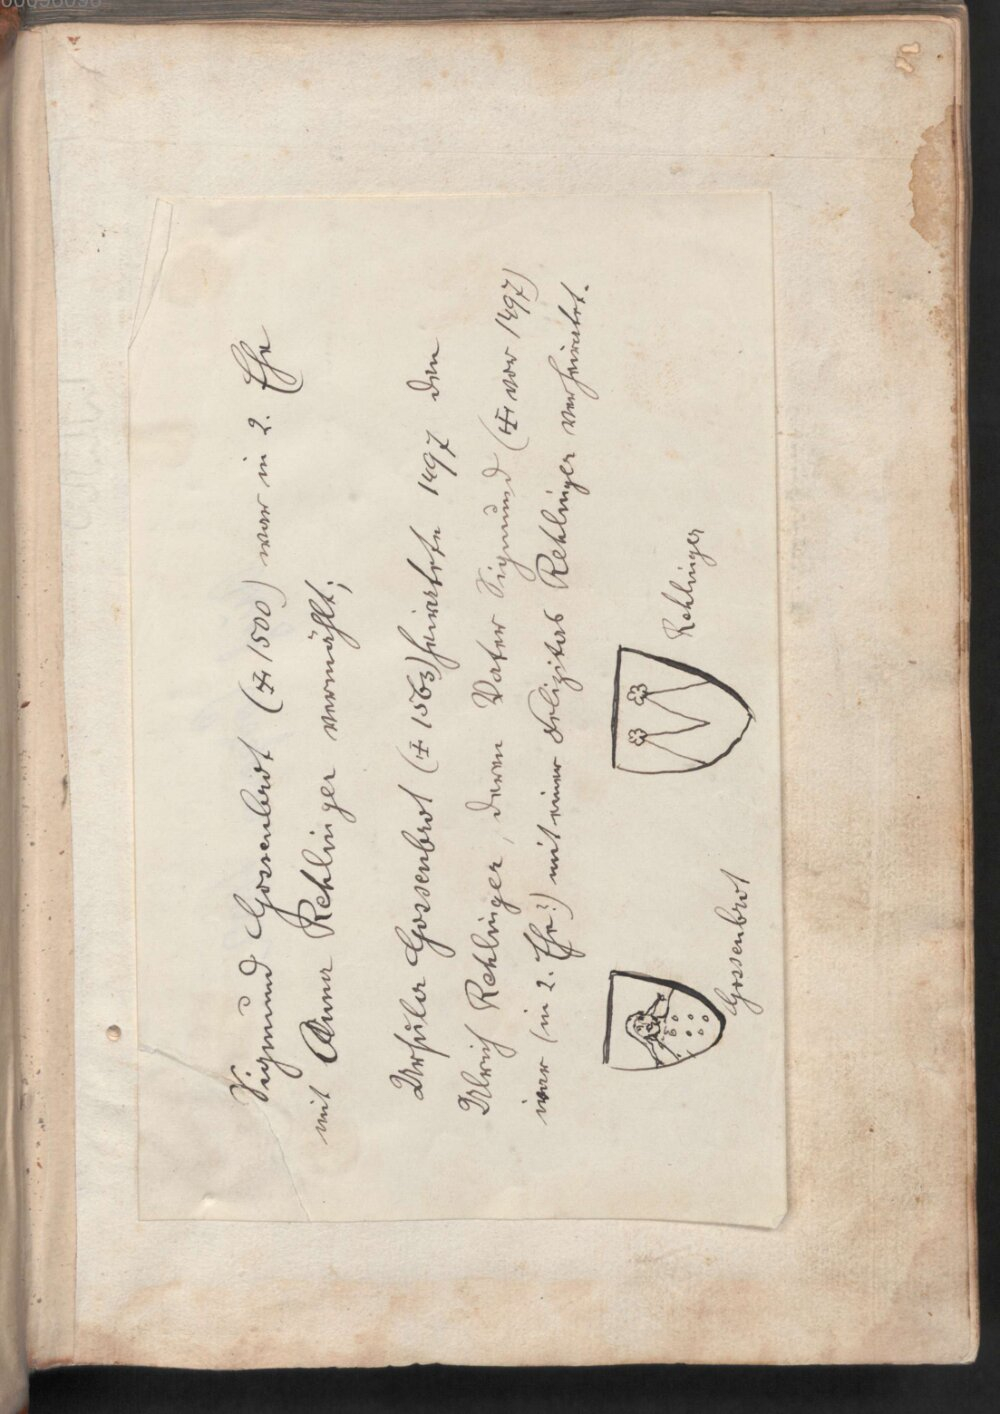 Sigmund Gossenbrot (✝ 1500) war in 2. Ehe
mit Anna Rehlinger vermählt;
Ursula Gossenbrot (✝ 1563) heiratete 1497 den
Ulrich Rehlinger, deren Vater Sigmund (✝ vor 1497)
war (in 2. Ehe?) mit einer Felizitas Rehlinger verheiratet.
Gossenbrot
Rehlinger